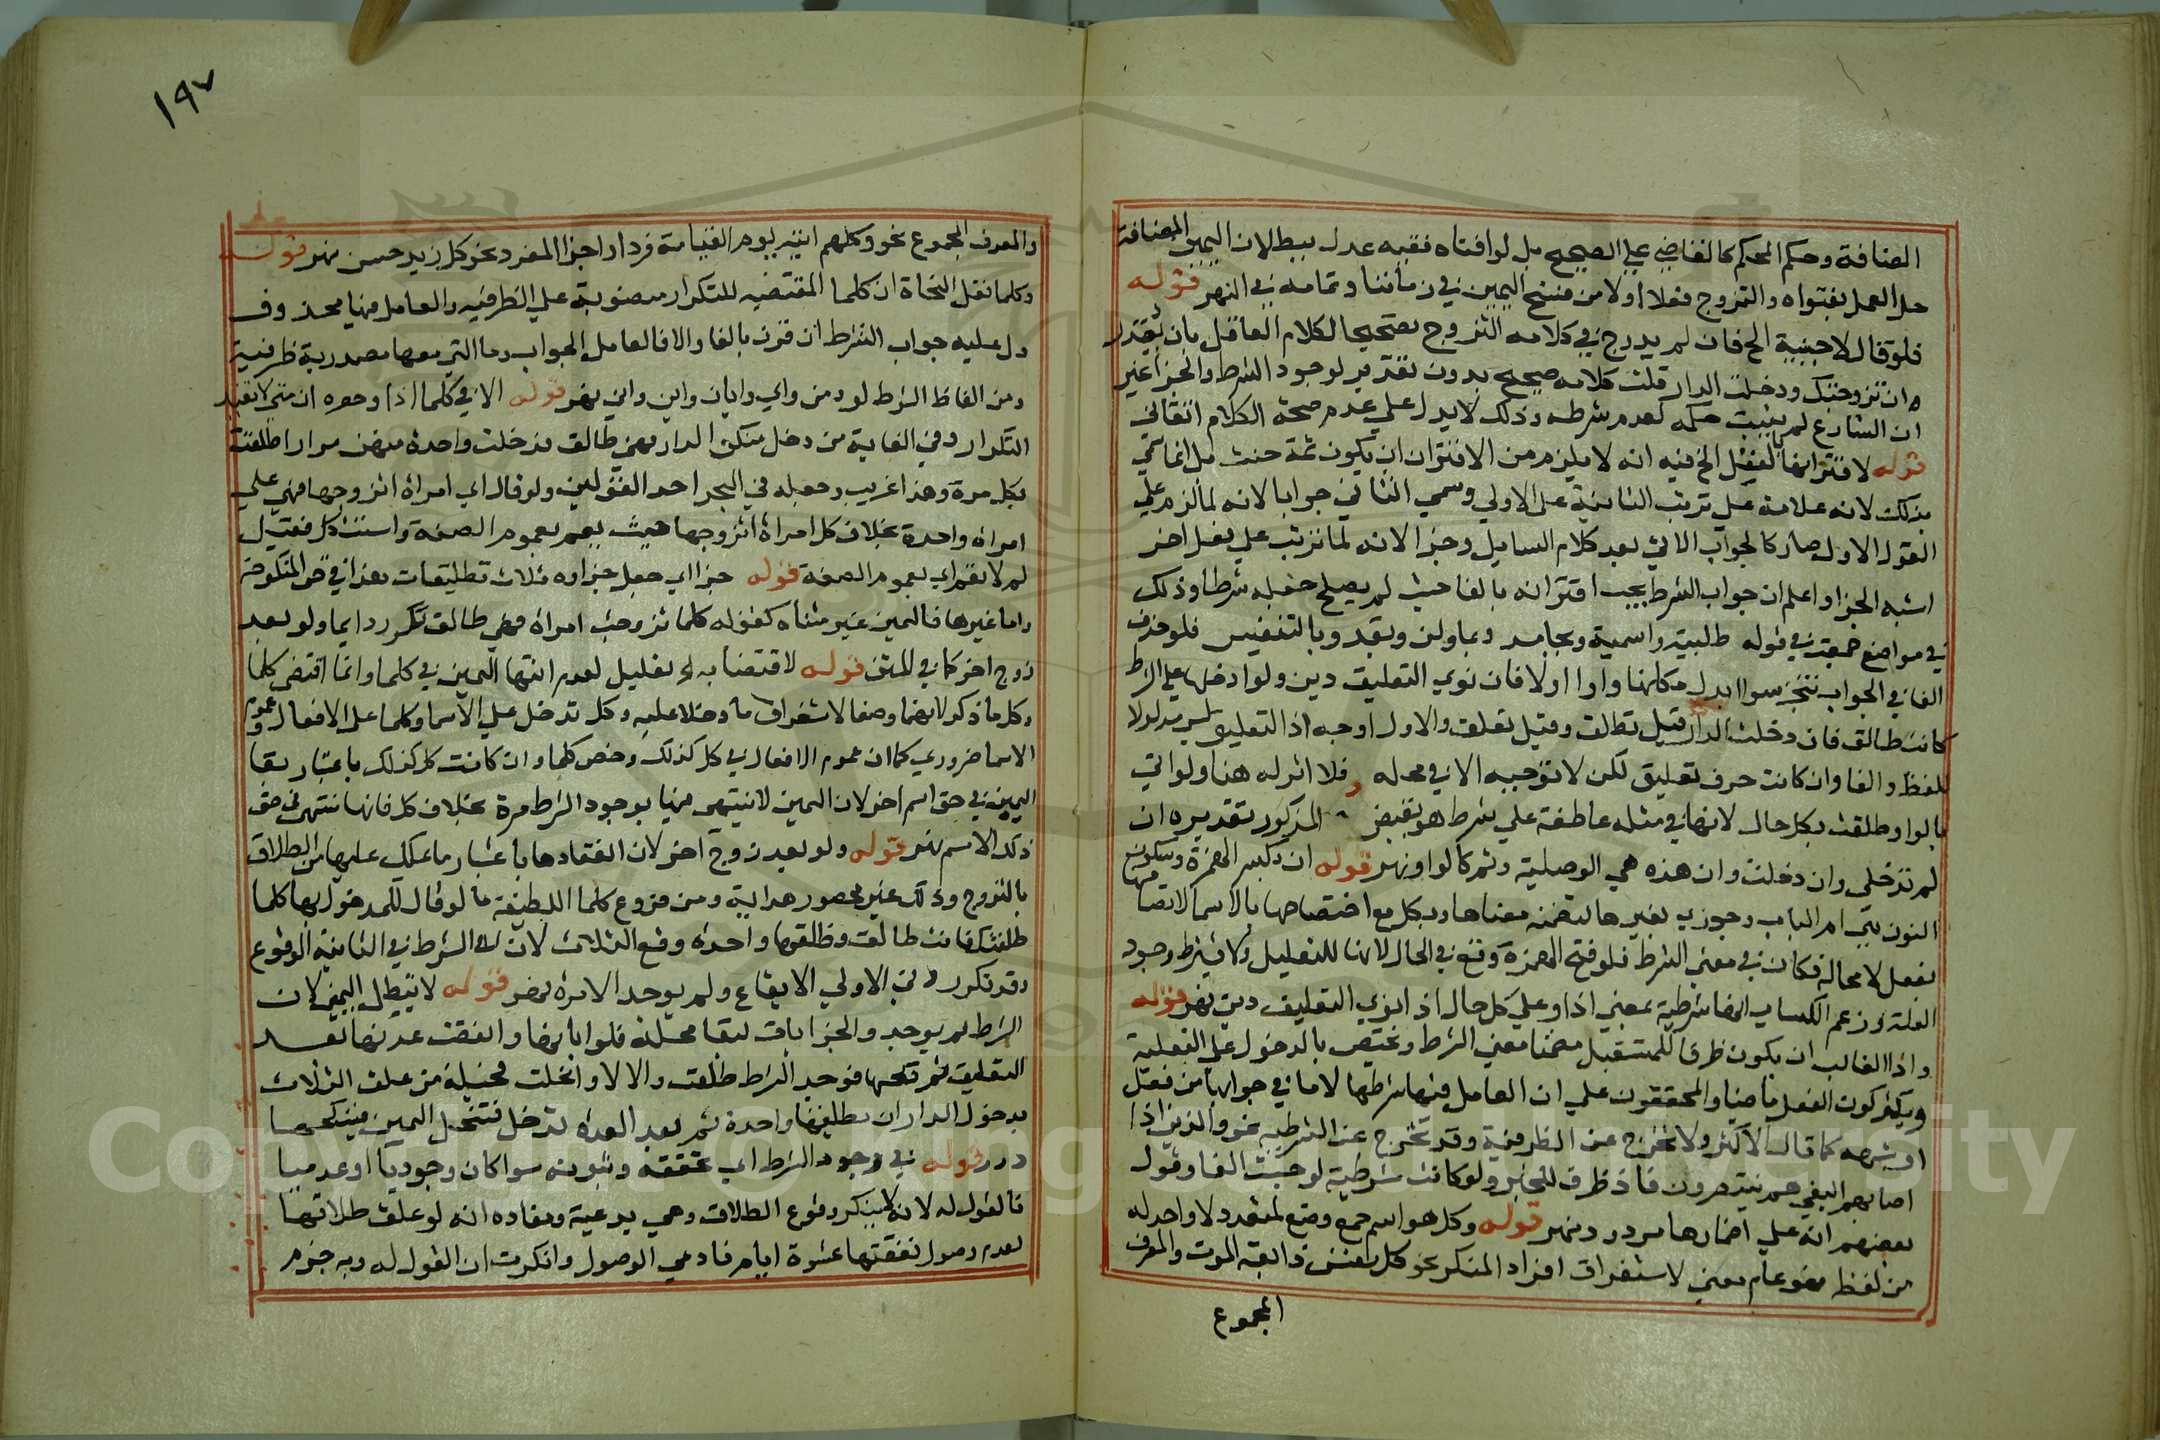 المضافة وحكم المحكم كالقاضي علي الصحيح بل لو افتاه فقيه عدل ببطلان اليمين المضافة
حل العمل بفتواه والتزوج فعلا اولا من فسخ اليمين في زماننا وتمامه في النهر قوله
فلو قال لاجنبية الخ فان لم يدرج في كلامه التزوج تصحيحا لكلام العاقل بان يقدر
ه ان تزوجتك ودخلت الدار قلت كلامه صحيح بدون تقدير لوجود الشرط والجزا غير
ان الشارع لم يثبت حكمه لعدم شرطه وذلك لا يدل علي عدم صحة الكلام اتقاني
قوله لاقترانها بالفعل الخ فيه انه لا يلزم من الاقتران ان يكون ثمة حنث بل انما سمي
بذلك لانه علامة علي ترتب الثانية علي الاولي وسمي الثاني جوابا لانه لما لزم علي
القول الاول صار كالجواب الاتي بعد كلام السايل وجزا لانه لما ترتب علي فعل اخر
اشبه الجزا واعلم ان جواب الشرط يجب اقترانه بالفا حيث لم يصلح جعله شرطا وذلك
في مواضع جمعت في قوله طلبية واسمية وبجامد وبما ولن وبقد وبالتنفيس فلو حذف
الفا في الجواب تنجز سوا ابدل مكانها واوا اولا فان نوي التعليق دين ولو ادخلها علي الشرط
كانت طالق فان دخلت الدار قيل تطلق وقيل تعلق والاول اوجه اذ التعليق ليس مدلولا
للفظ والفا وان كانت حرف تعليق لكن لا توجبه الا في محله فلا اثر له هنا ولو اتي
بالواو طلقت بكل حال لانها في مثله عاطفة علي شرط هو نقيض المذكور تقديره ان
لم تدخلي وان دخلت وان هذه هي الوصلية وثم كالواو نهر قوله ان بكسر الهمزة وسكون
النون هي ام الباب وجوزي بغيرها لتضمنه معناها وبكل مع اختصاصها بالاسما لاتصافها
بفعل لا محالة فكان في معني الشرط فلو فتح الهمزة وقع في الحال لانها للتعليل ولا يشترط وجود
العلة وزعم الكساي انها شرطية بمعني اذا وعلي كل حال اذا نوي التعليق دين نهر قوله
واذا الغالب ان يكون ظرفا للمستقبل مضمنا معني الشرط وتختص بالدخول علي الفعلية
ويكثر كون الفعل ماضيا والمحققون علي ان العامل فيها شرطها لا ما في جوابها من فعل
او شبهه كما قال الاكثر ولا تخرج عن الظرفية وقد تخرج عن الشرطية نحو والذين اذا
اصابهم البغي هم ينتصرون فاذ ظرف للخبر ولو كانت شرطية لوجبت الفا وقول
بعضهم انه علي اضمارها مردود نهر قوله وكل هو اسم جمع وضع لمتعدد لا واحد له
من لفظه فهو عام معني لاستغراق افراد المنكر نحو كل نفس ذايقة الموت والمعرف
المجموع
١٩٧
والمعرف المجموع نحو وكلهم اتيه يوم القيامة فردا واجزا المفرد نحو كل زيد حسن نهر قوله
وكلما نقل النحاة ان كلما المقتضيه للتكرار منصوبة علي الظرفيه والعامل فيها محذوف
دل عليه جواب الشرط ان قرن بالفا والا فالعامل الجواب وما التي معها مصدرية ظرفية
ومن الفاظ الشرط لو ومن واي وايان واين واني نهر قوله الا في كلما اذا وحده ان متي لا تفيد
التكرار وفي الغاية من دخل منكن الدار فهي طالق فدخلت واحدة منهن مرارا طلقت
بكل مرة وهذا غريب وجعله في البحر احد القولين ولو قال اي امراة اتزوجها فهي علي
امراة واحدة بخلاف كل امراة اتزوجها حيث يعم بعموم الصفة واستشكل فقيل
لم لا تعم اي بعموم الصفة قوله جزا اي جعل جزاوه ثلاث تطليقات بهذا في حق المنكوحة
واما غيرها فاليمين غير متناه كقوله كلما تزوجت امراة فهي طالق تكرر دايما ولو بعد
زوج اخر كما في المتن قوله لاقتضا به الخ تعليل لعدم انتها اليمين في كلما وانما اقتضي كلما
وكل ما ذكر لانهما وصفا لاستغراق ما دخلا عليه وكل تدخل علي الاسما وكلما علي الافعال وعموم
الاسما ضروري كما ان عموم الافعال في كل كذلك وخص كلما وان كانت كل كذلك باعتبار بقا
اليمين في حق اسم اخر لان اليمين لا ينتهي فيها بوجود الشرط مرة بخلاف كل فانها تنتهي في حق
ذلك الاسم نهر قوله ولو بعد زوج اخر لان انعقادها باعتبار ما يملك عليها من الطلاق
بالتزوج وذلك غير محصور هداية ومن فروع كلما اللطيفة ما لو قال للمدخول بها كلما
طلقتك فانت طالق وطلقها واحدة وقع الثلاث لان الشرط في الثانية الوقوع
وقد تكرر وفي الاولي الايقاع ولم يوجد الا مرة نهر قوله لا يبطل اليمين لان
الشرط لم يوجد والجزا باق لبقا محله فلو ابانها وانقضت عدتها بعد
التعليق ثم نكحها فوجد الشرط طلقت والا لا وانحلت فحيلة من علق الثلاث
بدخول الدار ان يطلقها واحدة ثم بعد العدة تدخل فتنحل اليمين فينكحها
درر قوله في وجود الشرط اي تحققه وثبوته سوا كان وجوديا او عدميا
فالقول له لانه ينكر وقوع الطلاق وهي يدعية ومفاده انه لو علق طلاقها
بعدم وصول نفقتها عشرة ايام فادعي الوصول وانكرت ان القول له وبه جزم